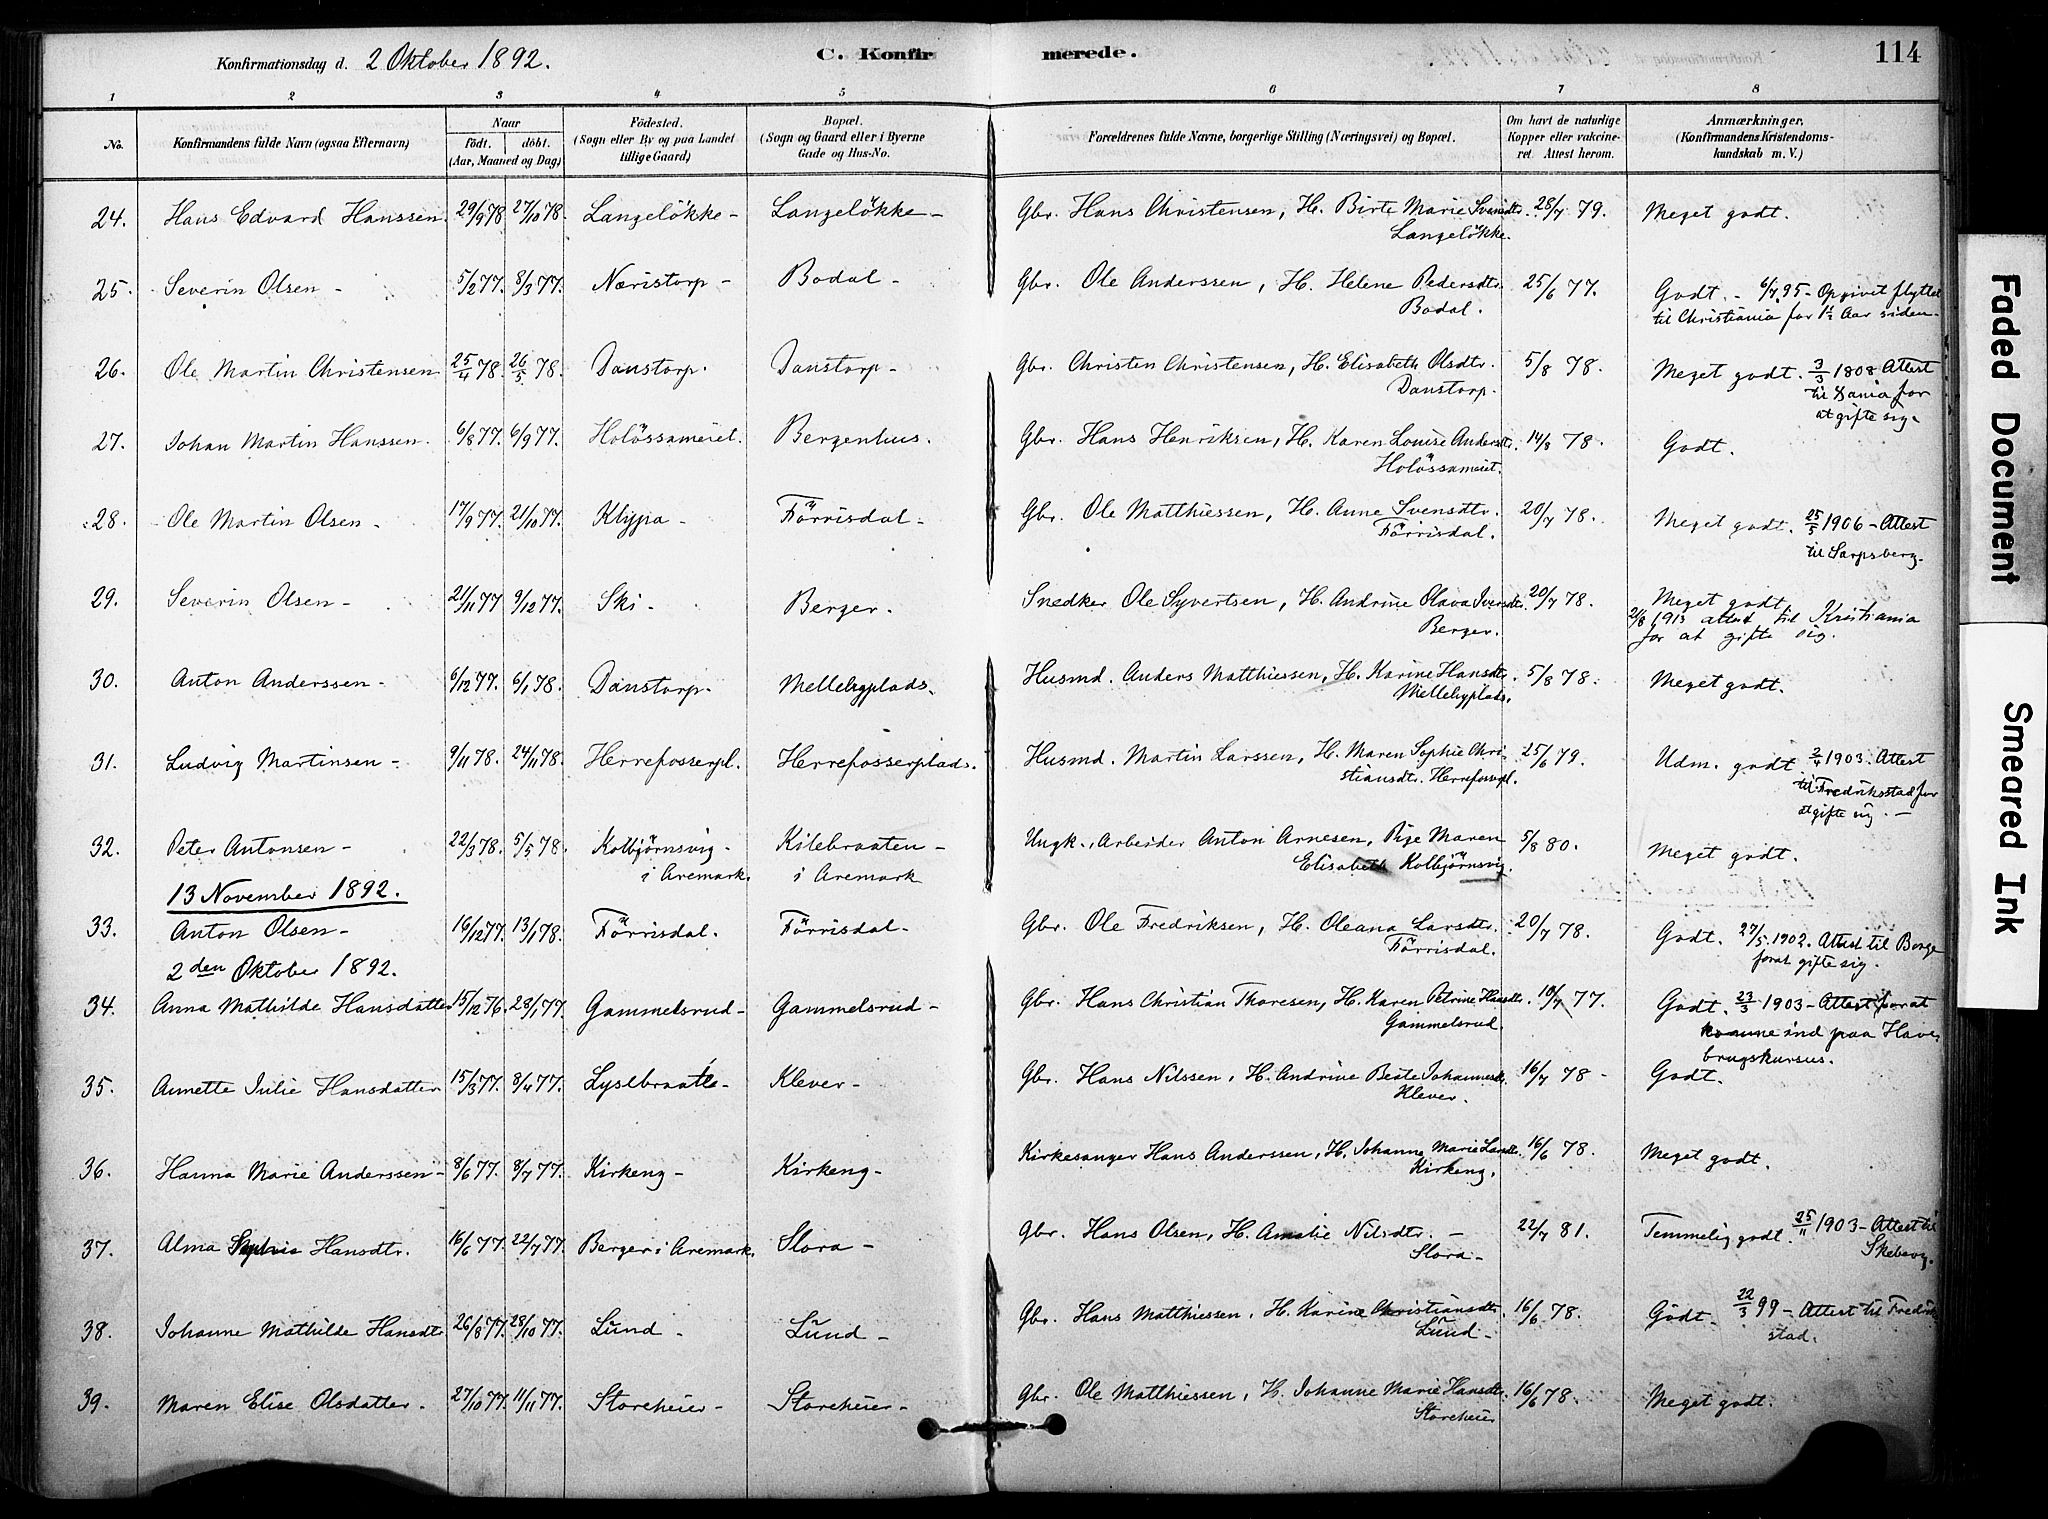 Konfirmationsdag d. 2 Oktober 1892.
C. Konfirmerede.
114
1 2 3 4 5 6 7 8
No.
Konfirmandens fulde Navn (ogsaa Efternavn)
Naar
födt. döbt.
(Aar, Maaned og Dag)
Födested.
(Sogn eller By og paa Landet
tillige Gaard)
Bopæl.
(Sogn og Gaard eller i Byerne
Gade og Hus-No.
Forældrenes fulde Navne, borgerlige Stilling (Næringsvei) og Bopæl.
Om havt de naturlige
Kopper eller vakcine-
ret Attest herom.
Anmærkninger,
(Konfirmandens Kristendoms-
kundskab m. V.)
24. Hans Edvard Hanssen. 29/9 78. 27/10 78. Langelökke - Langelökke - Gbr. Hans Christensen, H. Birte Marie Svendtr. 28/7 79. Meget godt.
Langelökke.
25. Severin Olsen - 5/2 77. 8/3 77. Næristorp - Bodal - Gbr. Ole Anderssen, H. Helene Pedersdtr. 25/6 77. Godt. - 6/7 95 - Opgivet flyttet
Bodal. til Christiania for 1½ Aar siden -
26. Ole Martin Christensen 25/4 78. 26/5 78. Danstorp. Danstorp - Gbr. Christen Christensen, H. Elisabeth Olsdtr. 5/8 78. Meget godt. 3/3 1808 Attest
Danstorp. til Xania for
at gifte sig.
27. Johan Martin Hanssen. 6/8 77. 6/9 77. Holössameiet. Bergenhus. Gbr. Hans Henriksen, H. Karen Louise Andersdtr. 14/8 78. Godt.
Holössameiet.
28. Ole Martin Olsen - 17/9 77. 21/10 77. Klypa - Förrisdal - Gbr. Ole Matthiessen, H. Anne Svensdtr. 20/7 78. Meget godt. 25/5 1906 - Attest
Förrisdal. til Sarpsborg.
29. Severin Olsen - 21/11 77 9/12 77. Ski - Berger. Snedker Ole Syvertsen, H. Andrine Olava Iversdtr. 20/7 78. Meget godt,
Berger. 2/8 1913 attest til Kristiania
for at gifte sig.
30. Anton Anderssen - 6/12 77. 6/1 78. Danstorp. Mellebyplads. Husmd. Anders Matthiessen, H. Karine Hansdtr. 5/8 78. Meget godt.
Mellebyplads.
31. Ludvig Martinsen - 9/11 78. 24/11 78. Herrefosserpl. Herrefosserplads. Husmd. Martin Larssen, H. Maren Sophie Chri- 25/6 79. Udm. godt 2/4 1903. Attest
stiansdtr. Herrefosspl. til Fredrikstad for
at gifte sig. -
32. Peter Antonsen - 22/3 78. 5/5 78. Kolbjörnsvig - Kilebraaten - Ungk. Arbeider Anton Arnesen, Pige Maren 5/8 80. Meget godt.
i Aremark. i Aremark Elisabeth Kolbjörnsvig.
13 November 1892.
33. Anton Olsen - 16/12 77. 13/1 78. Förrisdal. Förrisdal - Gbr. Ole Fredriksen, H. Oleana Larsdtr. 20/7 78. Godt. 27/5 1902. Attest til Borge
Förrisdal. forat gifte sig.
2den Oktober 1892.
34. Anna Mathilde Hansdatter 15/12 76. 28/1 77. Gammelsrud - Gammelsrud - Gbr. Hans Christian Thoresen, H. Karen Petrine Hansdtr. 10/7 77. Godt. 23/3 1903 - Attest for at
Gammelsrud. komme ind paa Have-
brugskursus.
35. Annette Julie Hansdatter 15/3 77. 8/4 77. Lyslbraatle - Klever - Gbr. Hans Nilssen, H. Andrine Beate Johannesdtr. 16/7 78 - Godt.
Klever.
36. Hanna Marie Anderssen - 8/6 77. 8/7 77. Kirkeng - Kirkeng - Kirkesanger Hans Anderssen, H. Johanne Marie Larsdtr. 16/6 78. Meget godt.
Kirkeng.
37. Alma Sophie Hansdtr. 16/6 77. 22/7 77. Berger i Aremark. Slora - Gbr. Hans Olsen, H. Amalie Nilsdtr. - 22/7 81. Temmelig godt. 25/11 1903 - Attest til
Slora - Skeberg.
38. Johanne Mathilde Hansdtr. 26/8 77. 28/10 77. Lund - Lund - Gbr. Hans Matthiessen, H. Karine Christiansdtr. 16/6 78. Godt - 22/3 99 - Attest til Fredrik
Lund - stad.
39. Maren Elise Olsdatter - 27/10 77. 11/11 77. Storeheier - Storeheier - Gbr. Ole Matthiessen, H. Johanne Marie Hansdtr. 16/6 78. Meget godt.
Storeheier
Faded Document
Smeared Ink